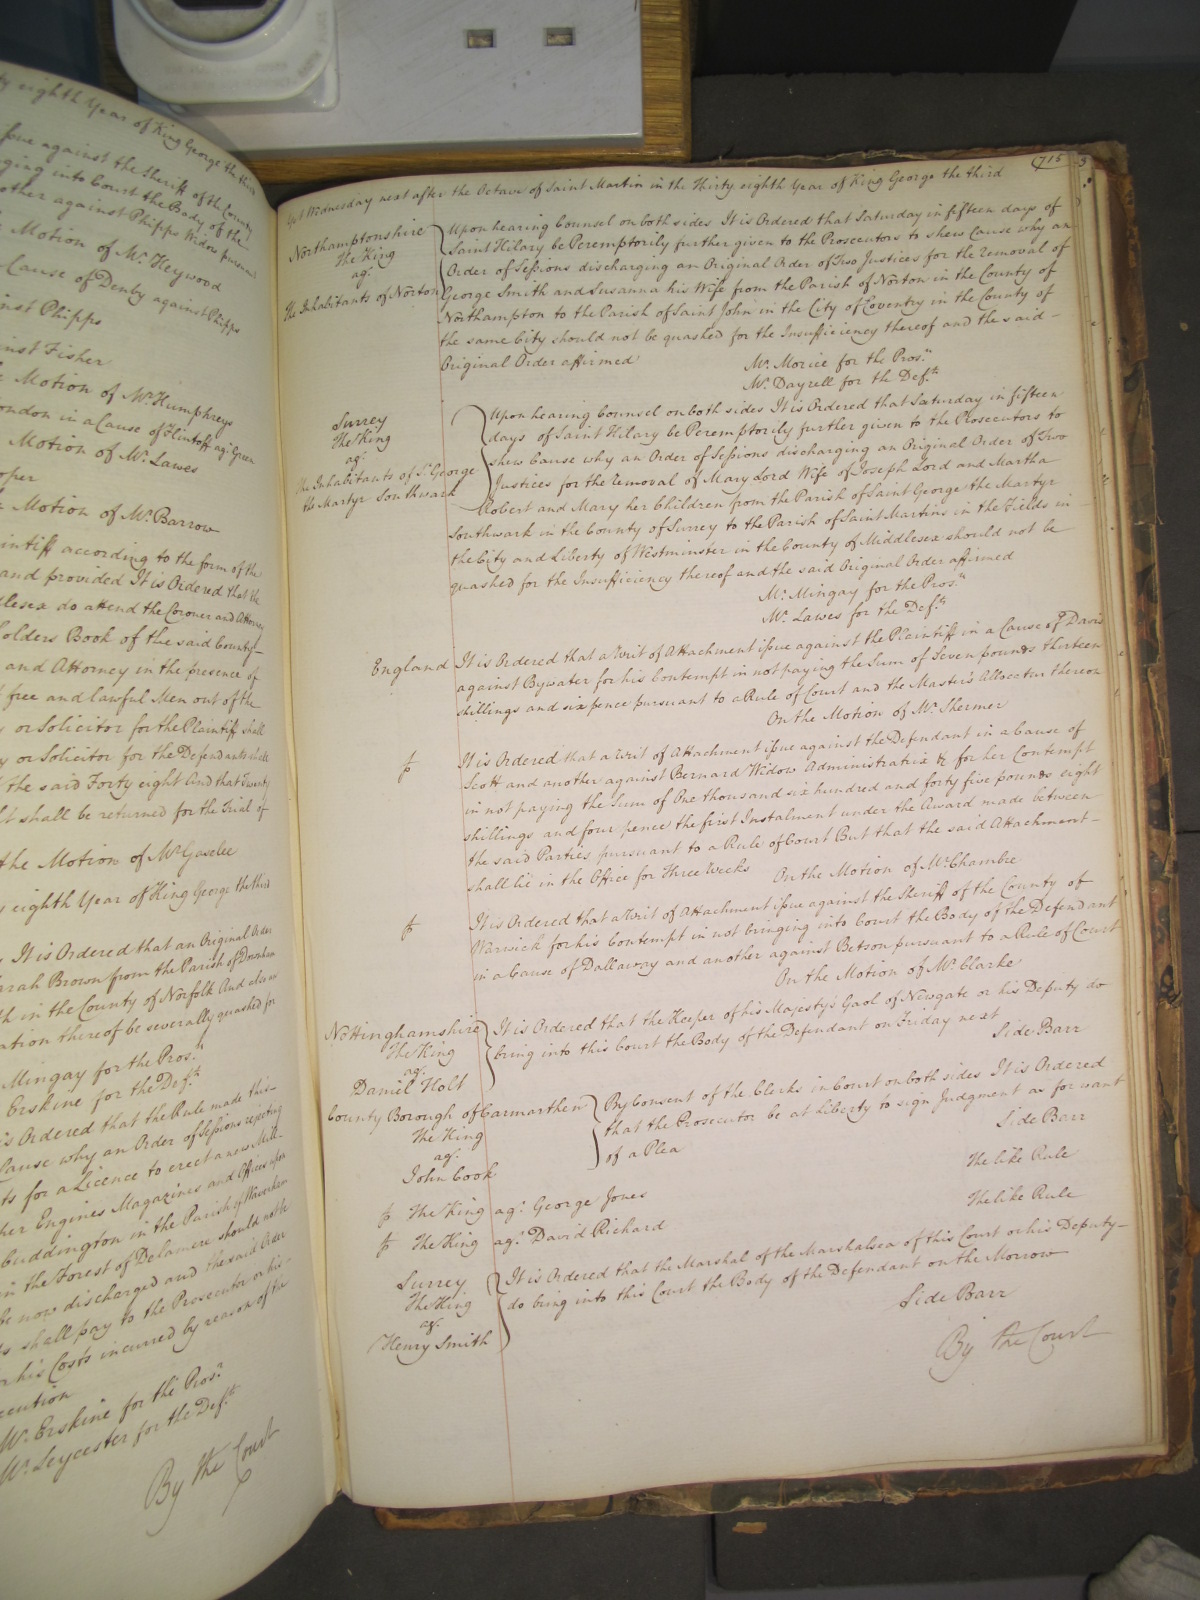 ty eighth Year of King George the third
Issue against the Sheriff of the County
ging into Court the Body of the
other against Phipps Widow pursuant
Motion of Mr. Heywood
Cause of Denby against Phipps
inst Phipps
inst Fisher
Motion of Mr. Humphreys
London in a Cause of Flintoff agt. Green
Motion of Mr. Lawes
oper
Motion of Mr. Barrow
intiff according to the form of the
and provided It is Ordered that the
dlesex do attend the Coroner and Attorney
holders Book of the said County
and Attorney in the presence of
free and lawful Men out of the
y or Solicitor for the Plaintiff shall
y or Solicitor for the Defendants shall
the said Forty eight And that Twenty
shall be returned for the Trial of
the Motion of Mr. Gaselee
eighth Year of King George the third
It is Ordered that an Original Order
arah Brown from the Parish of
th in the County of Norfolk And also an
ation thereof be severally quashed for
Mingay for the Pros.n
Erskine for the Def.ts
is Ordered that the Rule made this
Cause why an Order of Sessions rejecting
ts for a Licence to erect a new Mill
her Engines Magazines and Offices upon
Cuddington in the Parish of Weaverham
in the Forest of Delamere should not be
be now discharged and the said Order
ts shall pay to the Prosecutor or his
his Costs incurred by reason of the
ecution
Mr. Erskine for the Pros.n
Mr. Leycester for the Def.t
By the Court
Yet Wednesday next after the Octave of Saint Martin in the Thirty eighth Year of King George the third
715
3
Northamptonshire
The King
agt.
the Inhabitants of Norton
Upon hearing Counsel on both sides It is Ordered that Saturday in fifteen days of
Saint Hilary be Peremptorily further given to the Prosecutors to shew Cause why an
Order of Sessions discharging an Original Order of Two Justices for the removal of
George Smith and Susanna his Wife from the Parish of Norton in the County of
Northampton to the Parish of Saint John in the City of Coventry in the County of
the same City should not be quashed for the Insufficiency thereof and the said
Original Order affirmed
Mr. Morice for the Pros.n
Mr. Dayrell for the Def.ts
Surrey
The King
agt.
the Inhabitants of St. George
the Martyr Southwark
Upon hearing Counsel on both sides It is Ordered that Saturday in fifteen
days of Saint Hilary be Peremptorily further given to the Prosecutors to
shew Cause why an Order of Sessions discharging an Original Order of Two
Justices for the removal of Mary Lord Wife of Joseph Lord and Martha
Robert and Mary her Children from the Parish of Saint George the Martyr
Southwark in the County of Surrey to the Parish of Saint Martins in the Fields in
the City and Liberty of Westminster in the County of Middlesex should not be
quashed for the Insufficiency thereof and the said Original Order affirmed
Mr. Mingay for the Pros.n
Mr. Lawes for the Def.ts
England
It is Ordered that a Writ of Attachment issue against the Plaintiff in a Cause of Davis
against Bywater for his Contempt in not paying the Sum of Seven pounds thirteen
shillings and six pence pursuant to a Rule of Court and the Master's Allocatur thereon
On the Motion of Mr. Shermer
It is Ordered that a Writ of Attachment issue against the Defendant in a Cause of
Scott and another against Bernard Widow Administratrix &c for her Contempt
in not paying the Sum of One thousand six hundred and forty five pounds eight
shillings and four pence the first Instalment under the Award made between
the said Parties pursuant to a Rule of Court But that the said Attachment
shall lie in the Office for Three Weeks On the Motion of Mr. Chambre
It is Ordered that a Writ of Attachment issue against the Sheriff of the County of
Warwick for his Contempt in not bringing into Court the Body of the Defendant
in a Cause of Dallaway and another against Betson pursuant to a Rule of Court
On the Motion of Mr. Clarke
Nottinghamshire
The King
agt.
Daniel Holt
It is Ordered that the Keeper of his Majesty's Gaol of Newgate or his Deputy do
bring into this Court the Body of the Defendant on Friday next
Side Barr
County Borough of Carmarthen
The King
agt.
John Cook
By Consent of the Clerks in Court on both sides It is Ordered
that the Prosecutor be at Liberty to sign Judgment as for want
of a Plea
Side Barr
The King agt. George Jones The like Rule
The King agt. David Richard The like Rule
Surrey
The King
agt.
Henry Smith
It is Ordered that the Marshal of the Marshalsea of this Court or his Deputy
do bring into this Court the Body of the Defendant on the Morrow
Side Barr
By the Court